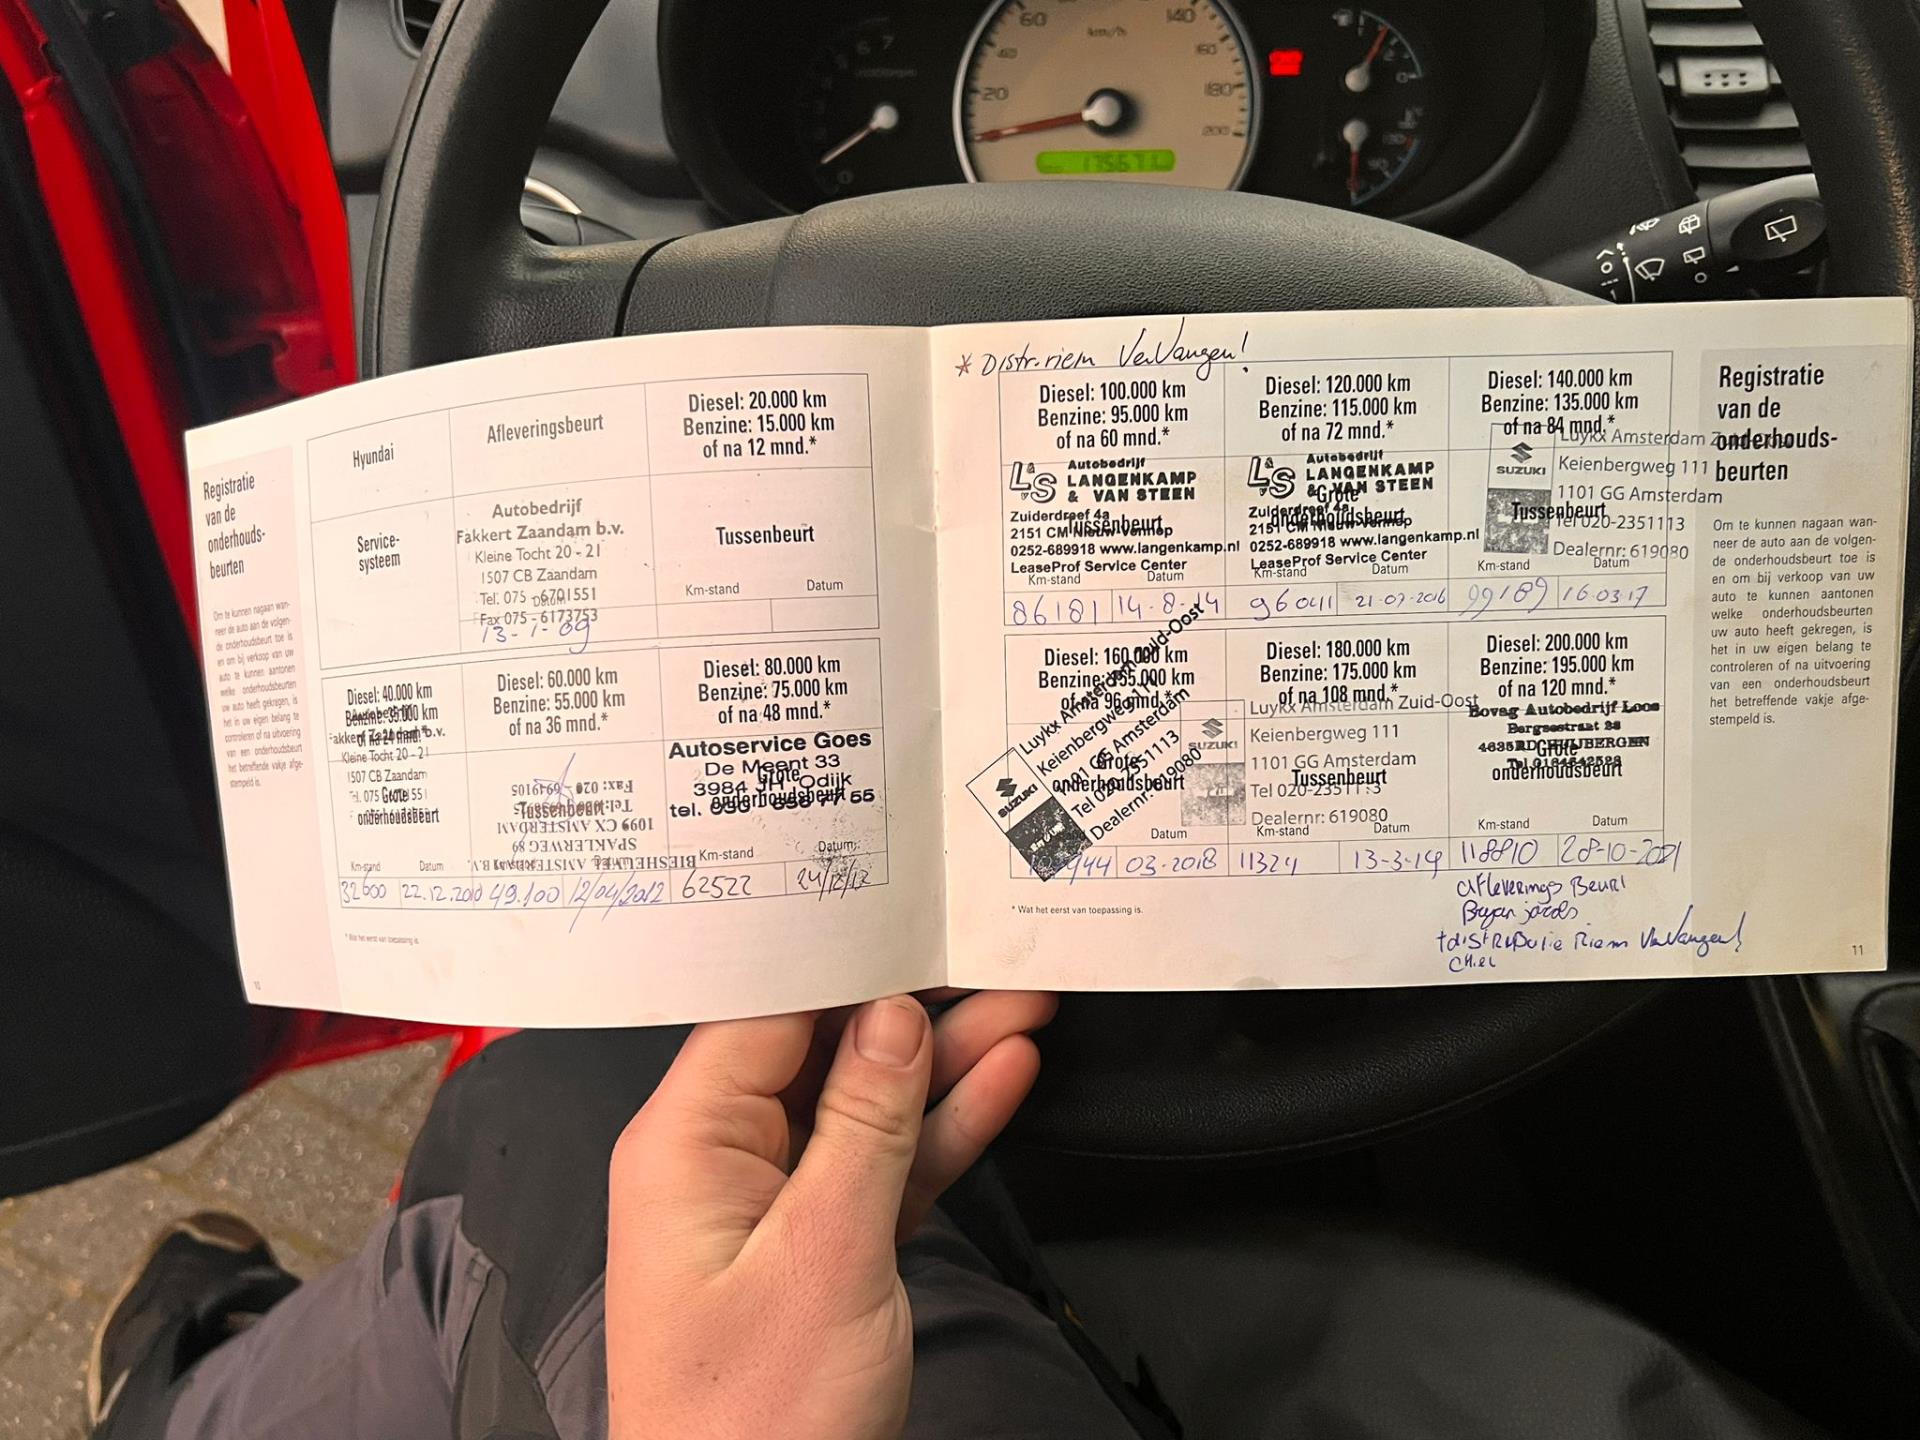 60
140
km/h
40
160
20
180
200
6 7
Registratie
van de
onderhouds-
beurten
Om te kunnen nagaan wan-
neer de auto aan de volgen-
de onderhoudsbeurt toe is
en om bij verkoop van uw
auto te kunnen aantonen
welke onderhoudsbeurten
uw auto heeft gekregen, is
het in uw eigen belang te
controleren of na uitvoering
van een onderhoudsbeurt
het betreffende vakje afge-
stempeld is.
Hyundai
Afleveringsbeurt
Diesel: 20.000 km
Benzine: 15.000 km
of na 12 mnd.*
Service-
systeem
Autobedrijf
Fakkert Zaandam b.v.
Kleine Tocht 20 - 21
1507 CB Zaandam
Tel. 075 - 6701551
Fax 075 - 6173753
Datum
13-1-09
Tussenbeurt
Km-stand Datum
Diesel: 40.000 km
Benzine: 35.000 km
of na 24 mnd.*
Fakkert Zaandam b.v.
Kleine Tocht 20 - 21
1507 CB Zaandam
Grote
onderhoudsbeurt
Km-stand Datum
32600 22.12.2010
Diesel: 60.000 km
Benzine: 55.000 km
of na 36 mnd.*
Fax: 020 - 6949105
Tussenbeurt
1099 CX AMSTERDAM
SPAKLERWEG 89
BIESHEUVEL AMSTERDAM B.V.
49.100 12/04/2012
Diesel: 80.000 km
Benzine: 75.000 km
of na 48 mnd.*
Autoservice Goes
De Meent 33
3984 JH Odijk
tel. 030 - 656 77 55
Grote
onderhoudsbeurt
Km-stand Datum
62522 24/12/12
* Wat het eerst van toepassing is.
10
* Distr.riem Vervangen!
Diesel: 100.000 km
Benzine: 95.000 km
of na 60 mnd.*
L&S Autobedrijf
LANGENKAMP
& VAN STEEN
Zuiderdreef 4a
2151 CM Nieuw-Vennep
0252-689918 www.langenkamp.nl
LeaseProf Service Center
Tussenbeurt
Km-stand Datum
86181 14-8-14
Diesel: 120.000 km
Benzine: 115.000 km
of na 72 mnd.*
L&S Autobedrijf
LANGENKAMP
& VAN STEEN
Zuiderdreef 4a
2151 CM Nieuw-Vennep
0252-689918 www.langenkamp.nl
LeaseProf Service Center
Grote
onderhoudsbeurt
Km-stand Datum
96041 21-07-2016
Diesel: 140.000 km
Benzine: 135.000 km
of na 84 mnd.*
SUZUKI
Luykx Amsterdam Zuid-Oost
Keienbergweg 111
1101 GG Amsterdam
Tel 020-2351113
Dealernr: 619080
Tussenbeurt
Km-stand Datum
99189 16-03-17
Diesel: 160.000 km
Benzine: 155.000 km
of na 96 mnd.*
SUZUKI
Luykx Amsterdam Zuid-Oost
Keienbergweg 111
1101 GG Amsterdam
Tel 020-2351113
Dealernr: 619080
Grote
onderhoudsbeurt
Datum
03-2018
Diesel: 180.000 km
Benzine: 175.000 km
of na 108 mnd.*
SUZUKI
Luykx Amsterdam Zuid-Oost
Keienbergweg 111
1101 GG Amsterdam
Tel 020-2351113
Dealernr: 619080
Tussenbeurt
Km-stand Datum
11324 13-3-19
Diesel: 200.000 km
Benzine: 195.000 km
of na 120 mnd.*
Bovag Autobedrijf Loos
Bergsestraat 28
4635RD HUIJBERGEN
Tel 0164642528
Grote
onderhoudsbeurt
Km-stand Datum
118810 28-10-2021
Afleverings Beurt
+ distributie Riem Vervangen!
* Wat het eerst van toepassing is.
Registratie
van de
onderhouds-
beurten
Om te kunnen nagaan wan-
neer de auto aan de volgen-
de onderhoudsbeurt toe is
en om bij verkoop van uw
auto te kunnen aantonen
welke onderhoudsbeurten
uw auto heeft gekregen, is
het in uw eigen belang te
controleren of na uitvoering
van een onderhoudsbeurt
het betreffende vakje afge-
stempeld is.
11